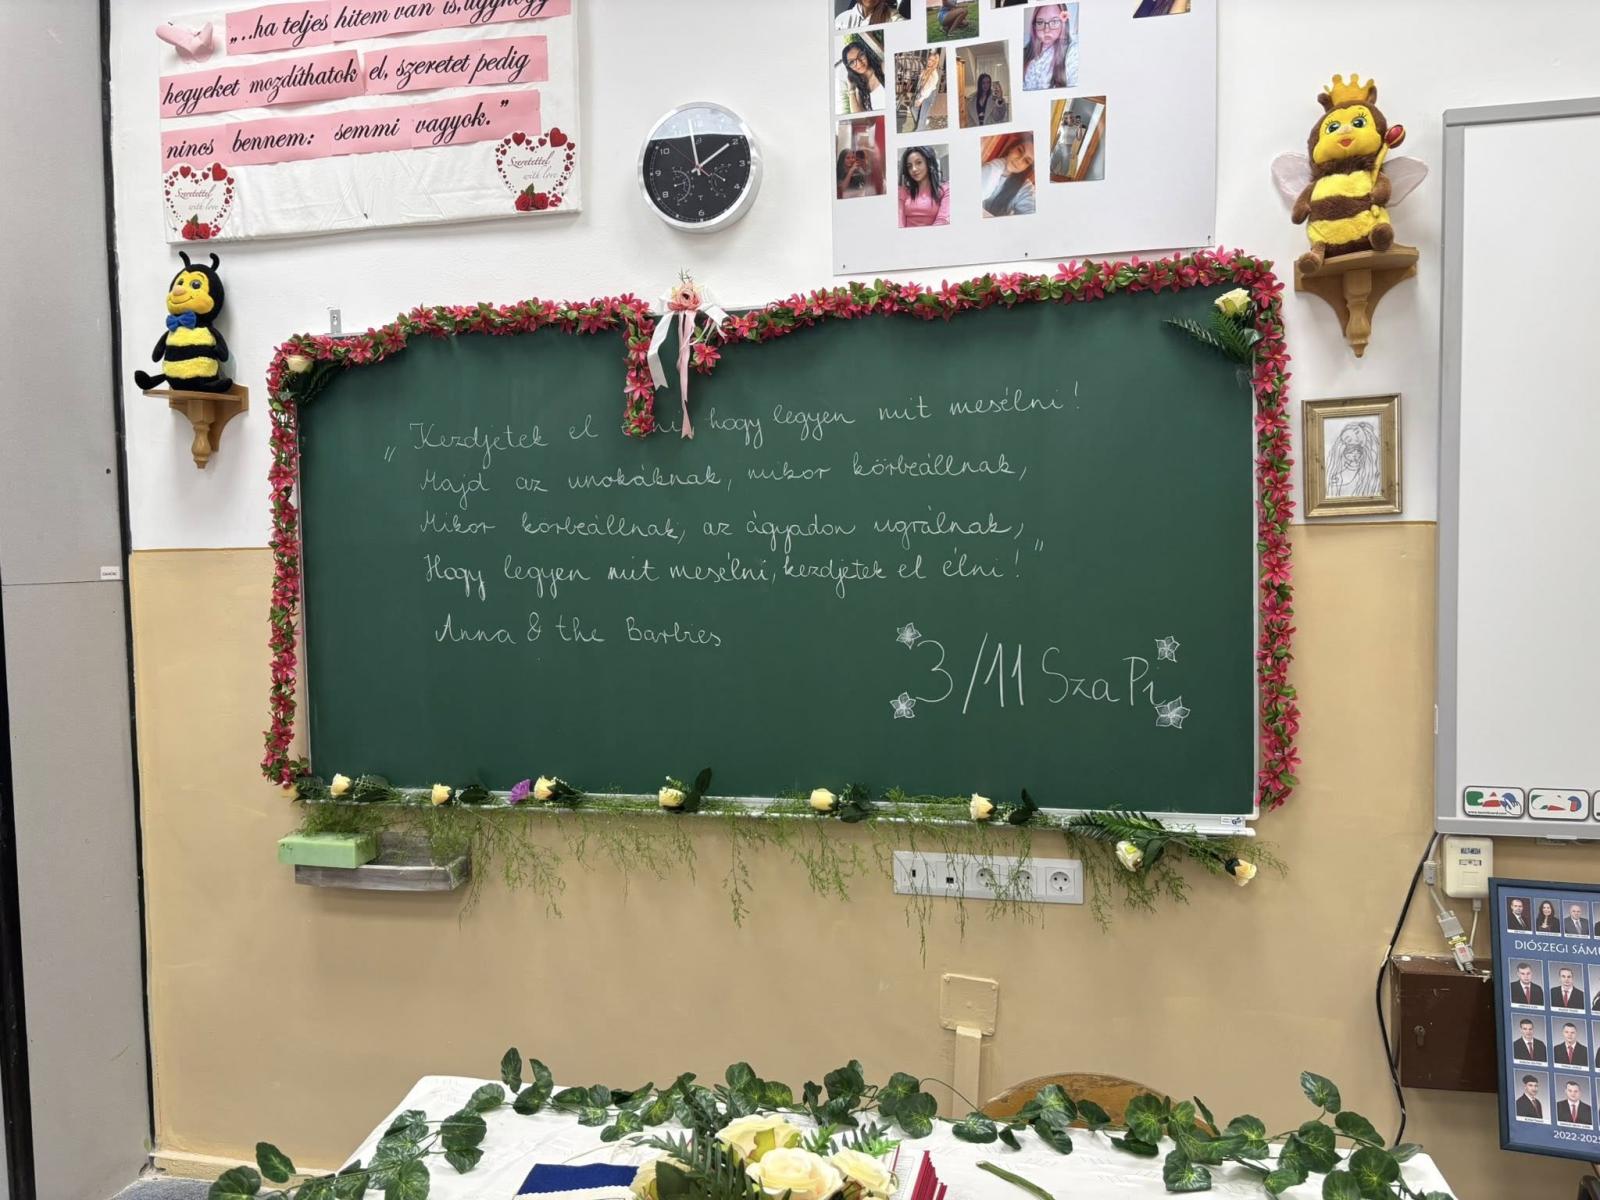 „...ha teljes hitem van is, úgyhogy
hegyeket mozdíthatok el, szeretet pedig
nincs bennem: semmi vagyok.”
Szeretettel
with love
Szeretettel
with love
„Kezdjetek el hogy legyen mit mesélni!
Majd az unokáknak, mikor körbeállnak,
Mikor körbeállnak, az ágyadon ugrálnak,
Hogy legyen mit mesélni, kezdjetek el élni!”
Anna & the Barbies
3/11 SzaPi
DIÓSZEGI SÁMU
2022-202